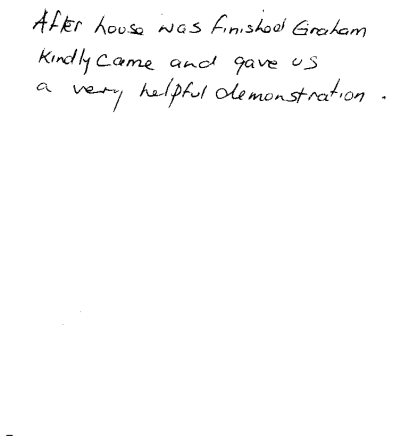 After house was finished Graham
Kindly Came and gave us
a very helpful demonstration.